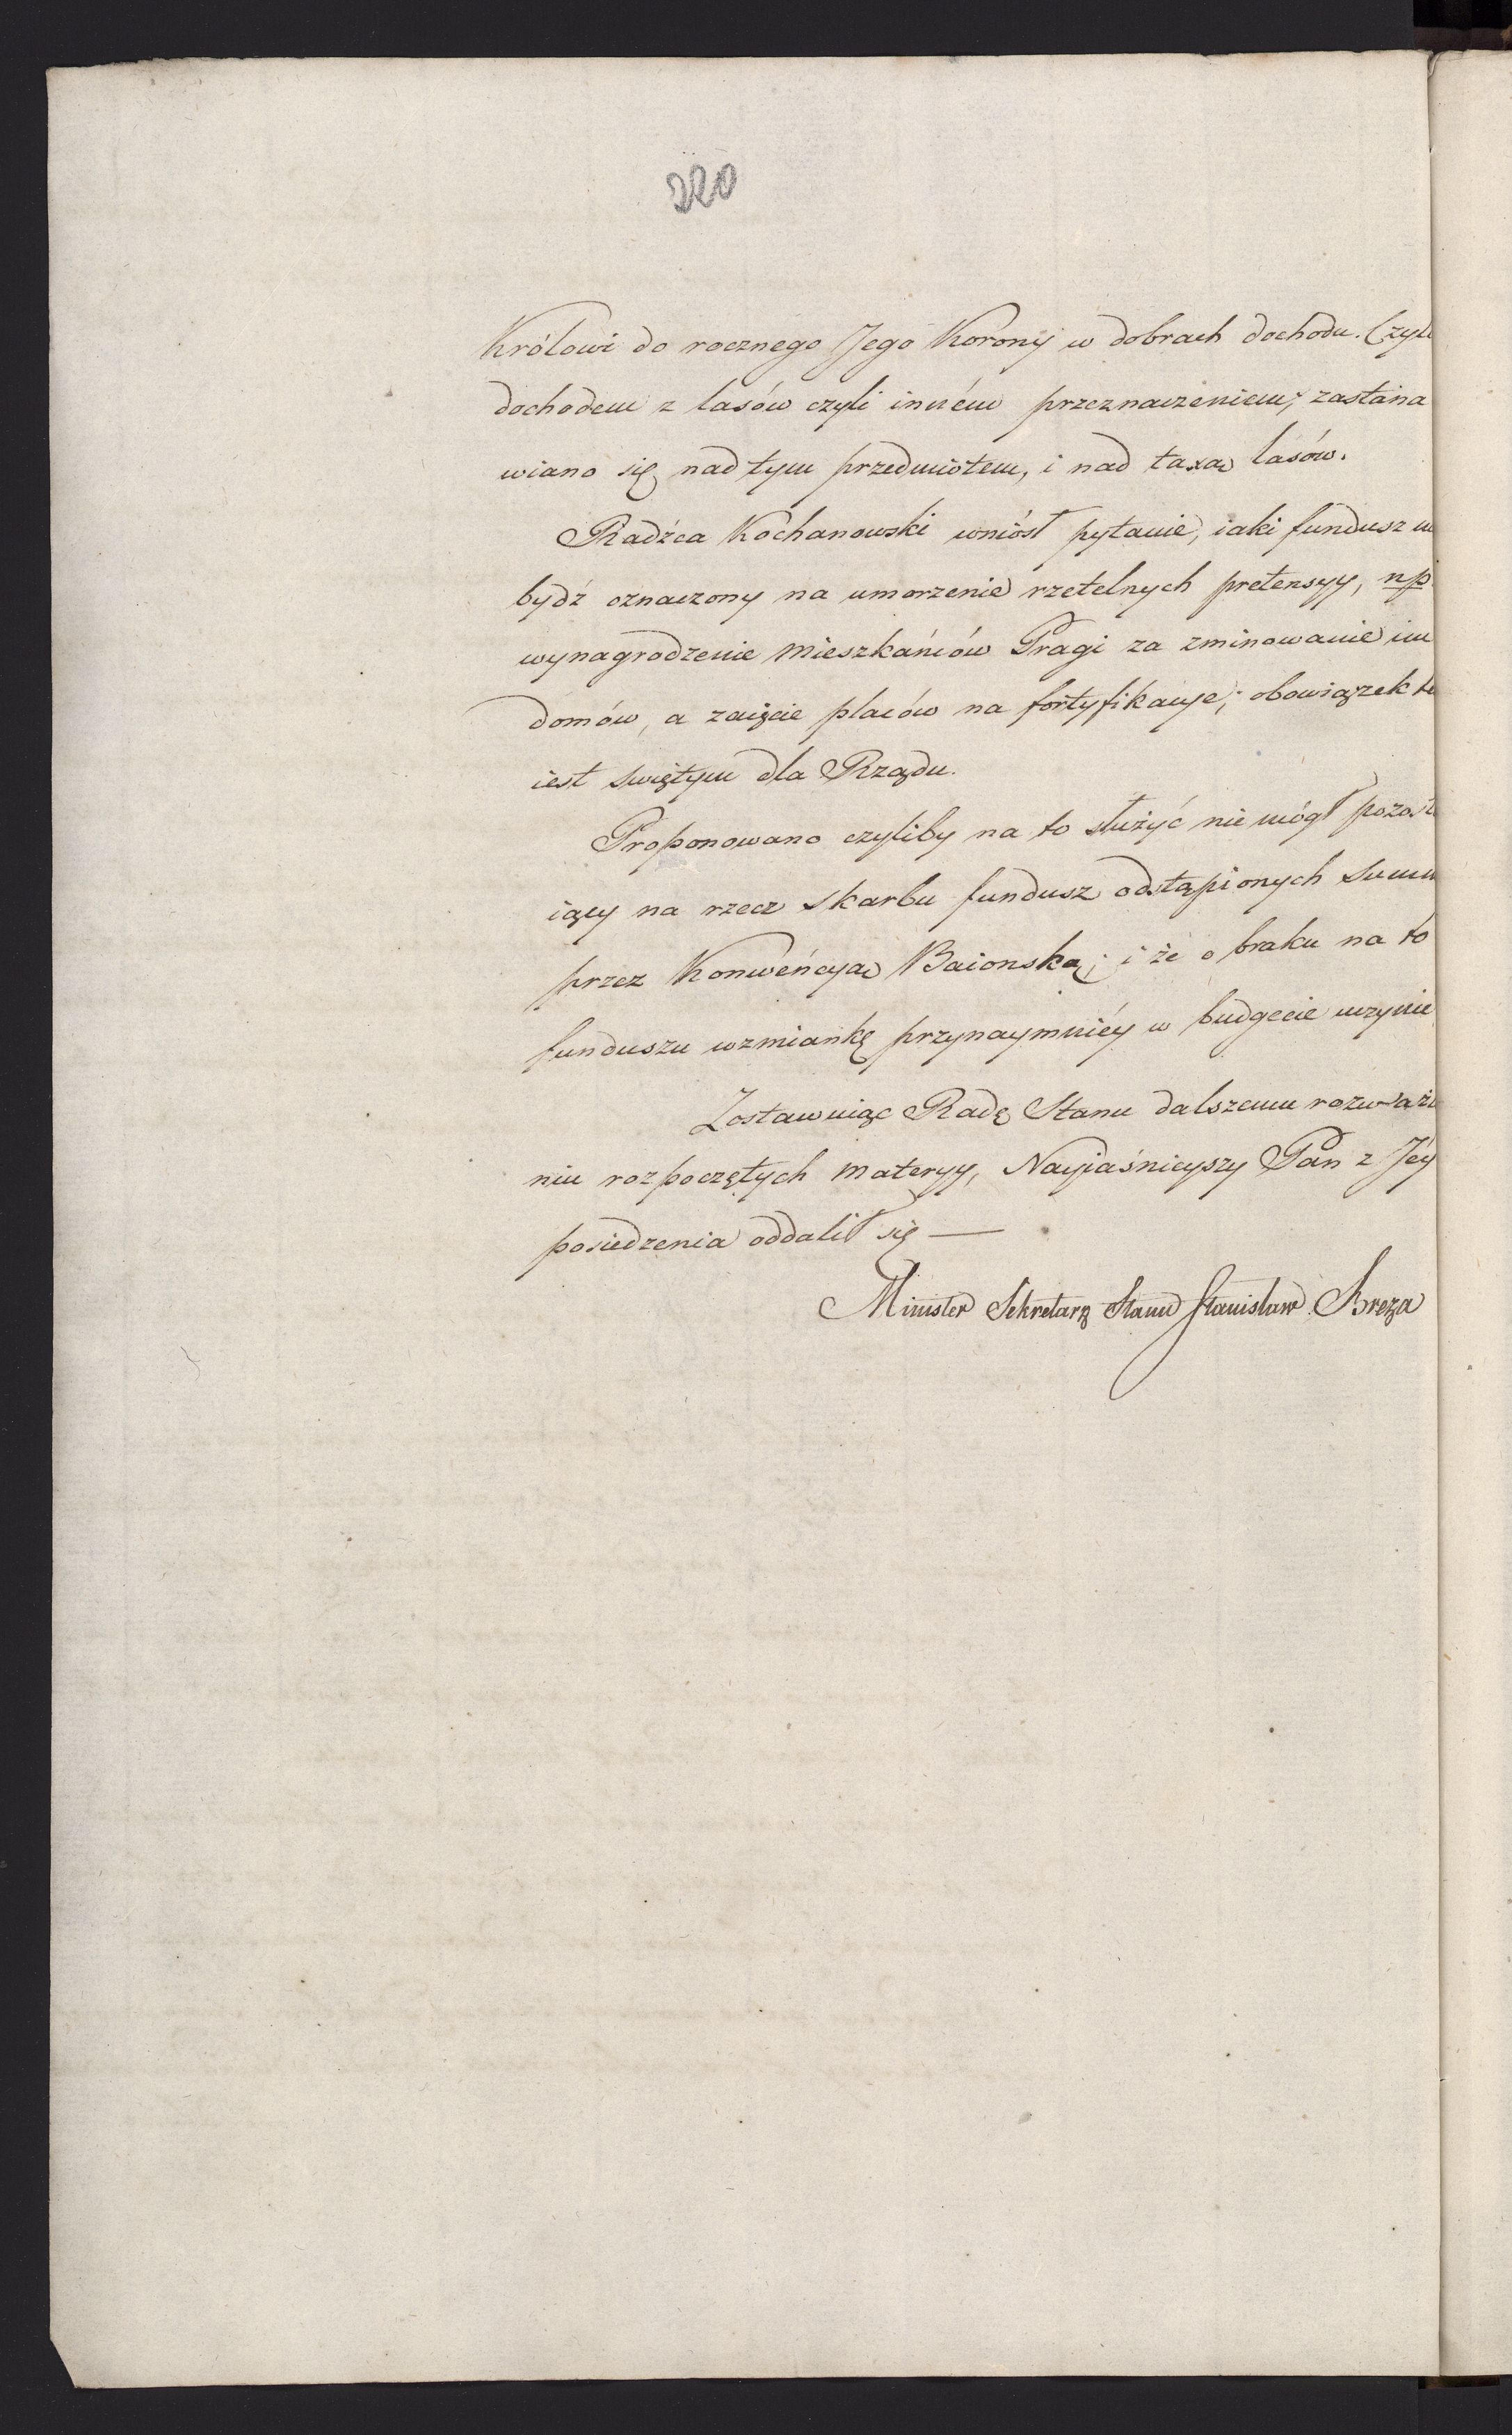 320
Królowi do rocznego Jego Korony w dobrach dochodu. Czyli
dochodem z lasów czyli inném przeznaczeniem; zastana
wiano się nad tym przedmiotem, i nad taxą lasów.
Radźca Kochanowski wniósł pytanie, iaki fundusz
bydź oznaczony na umorzenie rzetelnych pretensyy, np
wynagrodzenie mieszkańców Pragi za zminowanie im
domów, a zaięcie placów na fortyfikacye; obowiązek
iest świętym dla Rządu.
Proponowano czyliby na to służyć nie mógł pozost
iący na rzecz skarbu fundusz odstąpionych summ
przez Konwencyą Baionską; i że o braku na to
funduszu wzmiankę przynaymniéy w budgecie uczynić
Zostawuiąc Radę Stanu dalszemu rozważa
niu rozpoczętych materyy, Nayiaśnieyszy Pan z Jéy
posiedzenia oddalił się —
Minister Sekretarz Stanu Stanisław Breza